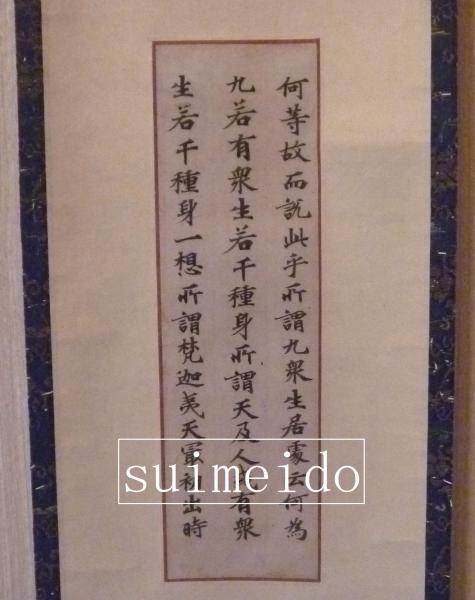 何等故而説此乎所謂九衆生居處云何為
九若有衆生若干種身所謂天及人或有衆
生若干種身一想所謂梵迦夷天最初出時
suimeido